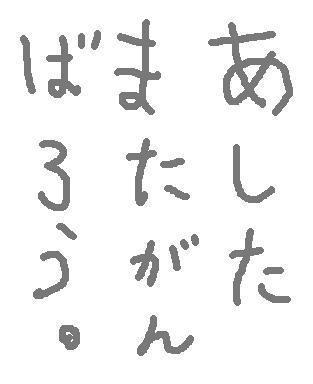 あした
またがん
ばろう。